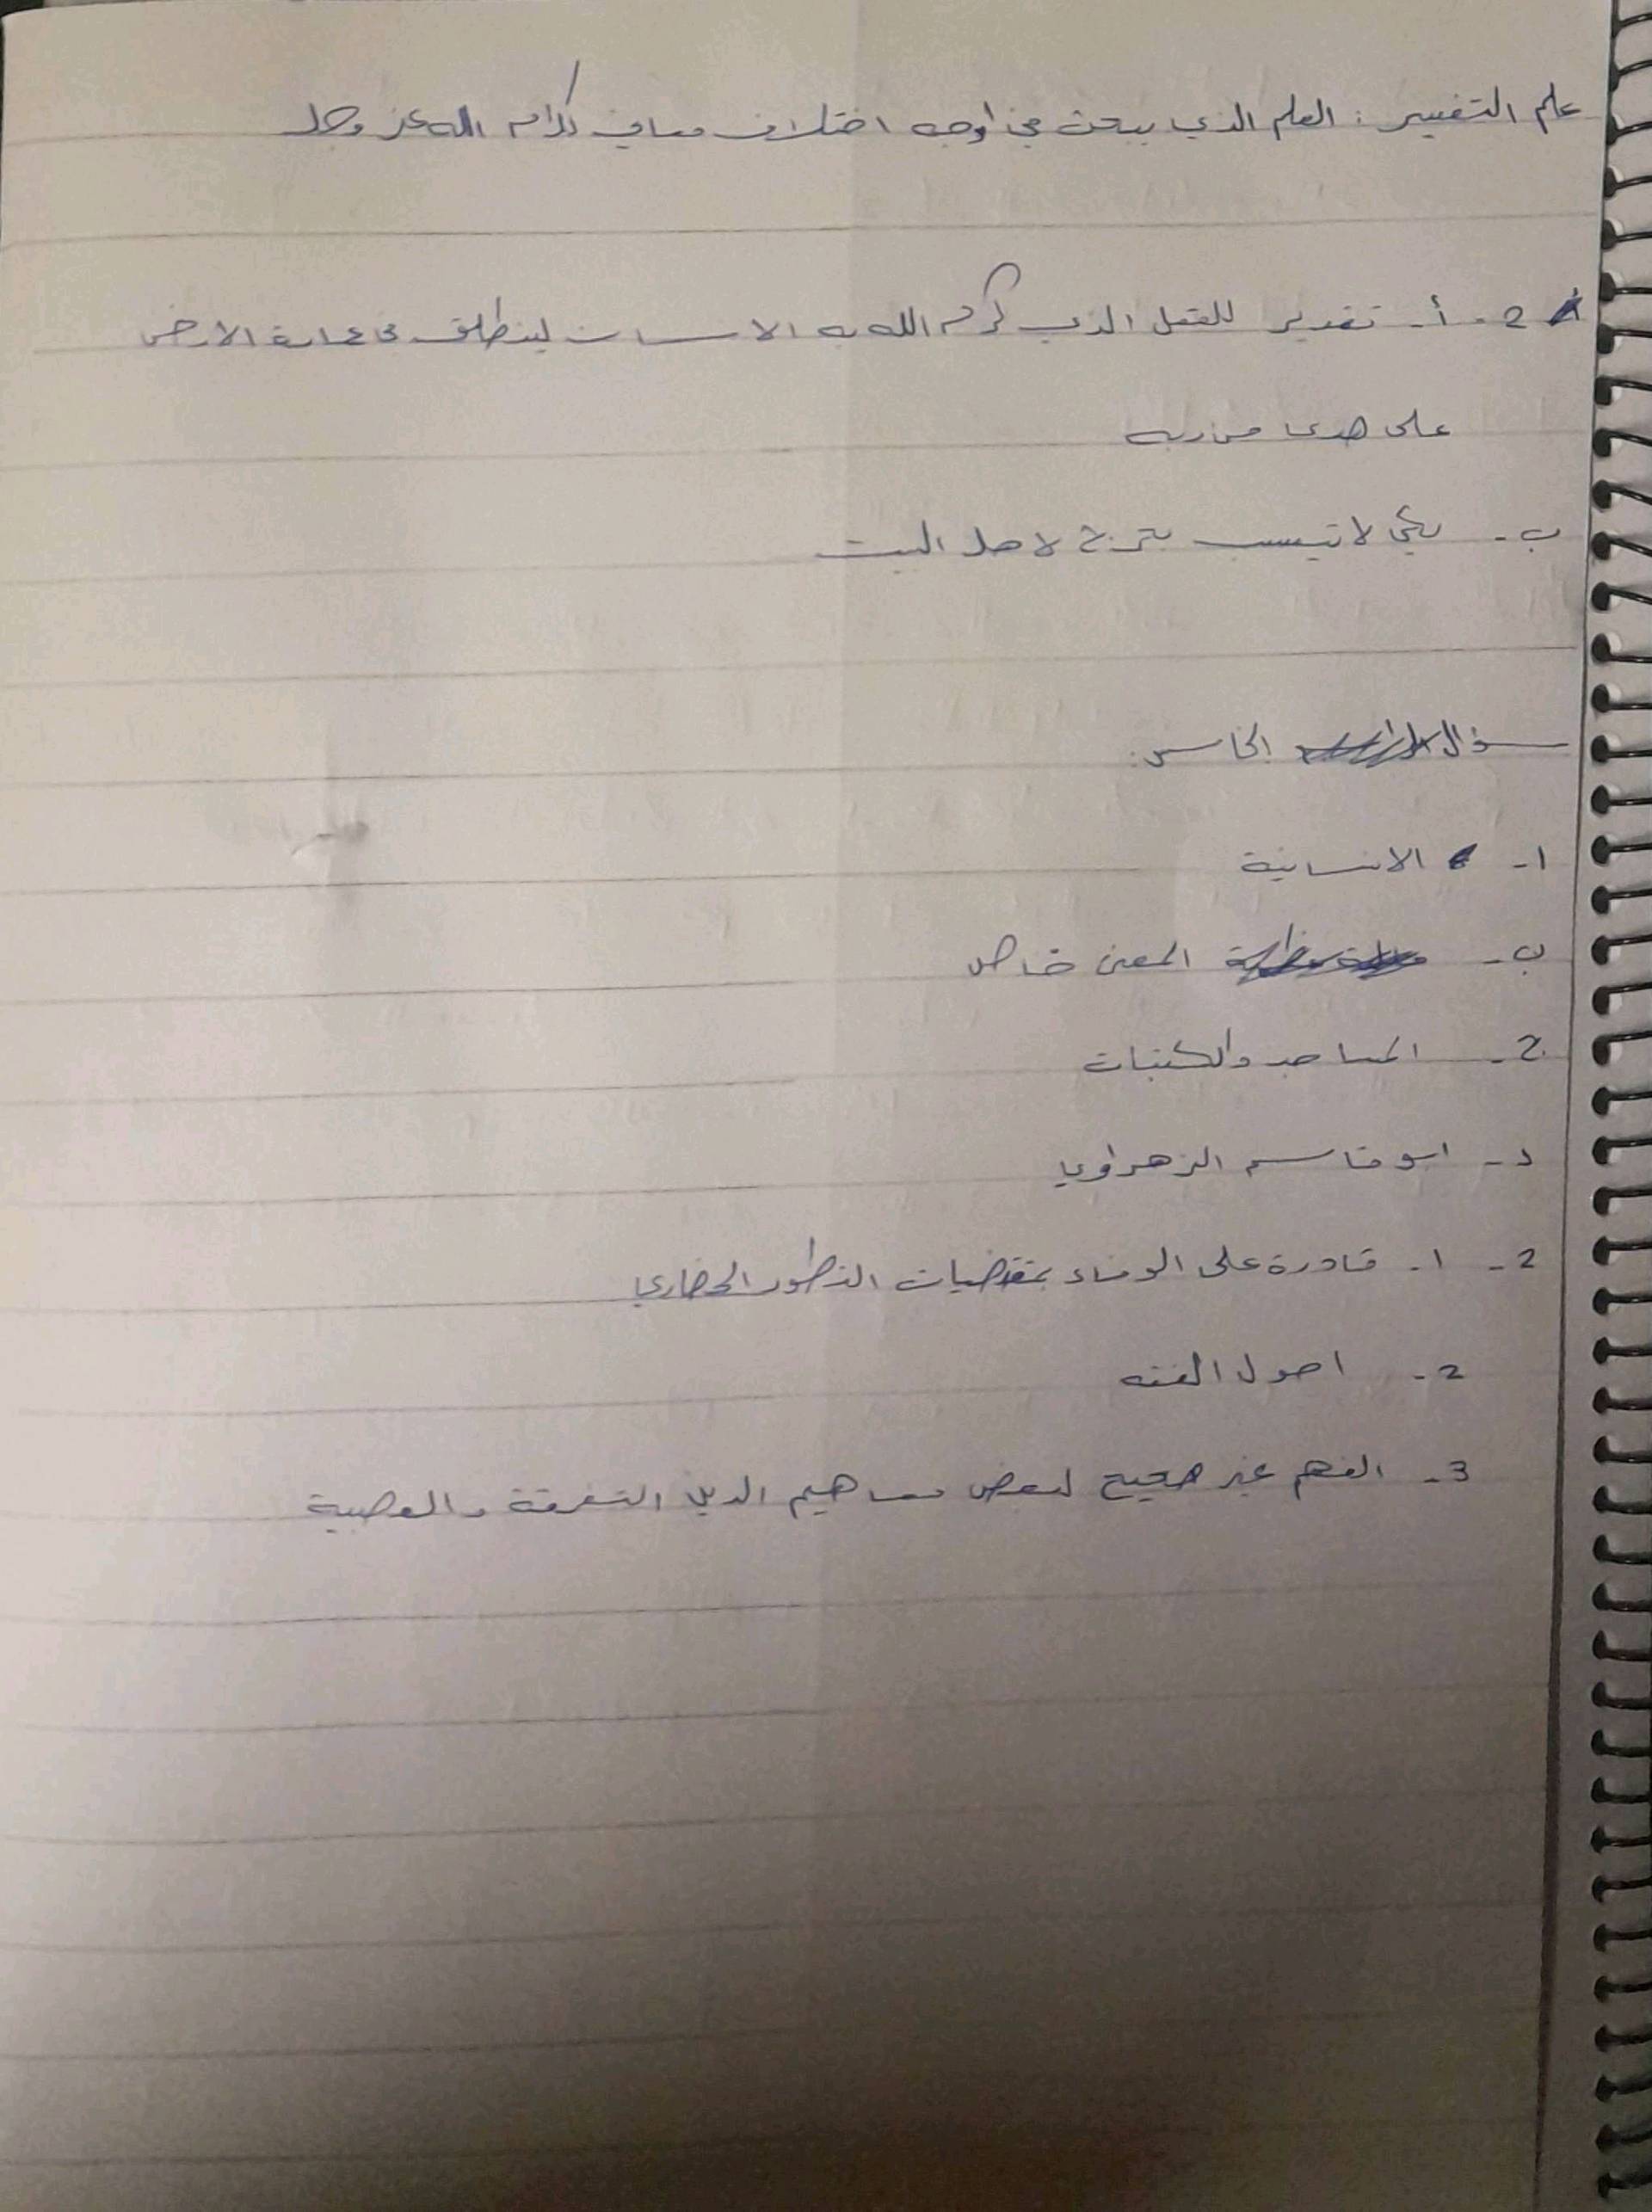 علم التفسير : العلم الذي يبحث في اوجه اختلاف معاني كلام الله عز وجل
2 - أ - تقدير للعقل الذي كرم الله به الانسان لينطلق في عمارة الارض
على هدى من ربه
ب - لكي لا تسبب بحرج لاهل البيت
سؤال الخامس :
ا - الانسانية
ب - المعنى خاص
ج - المساجد والمكتبات
د - ابو قاسم الزهراوي
2 - 1 - قادرة على الوفاء بمقتضيات التطور الحضاري
2 - اصول الفقه
3 - الفهم غير صحيح لبعض مفاهيم الدين التفرقة والعصبية